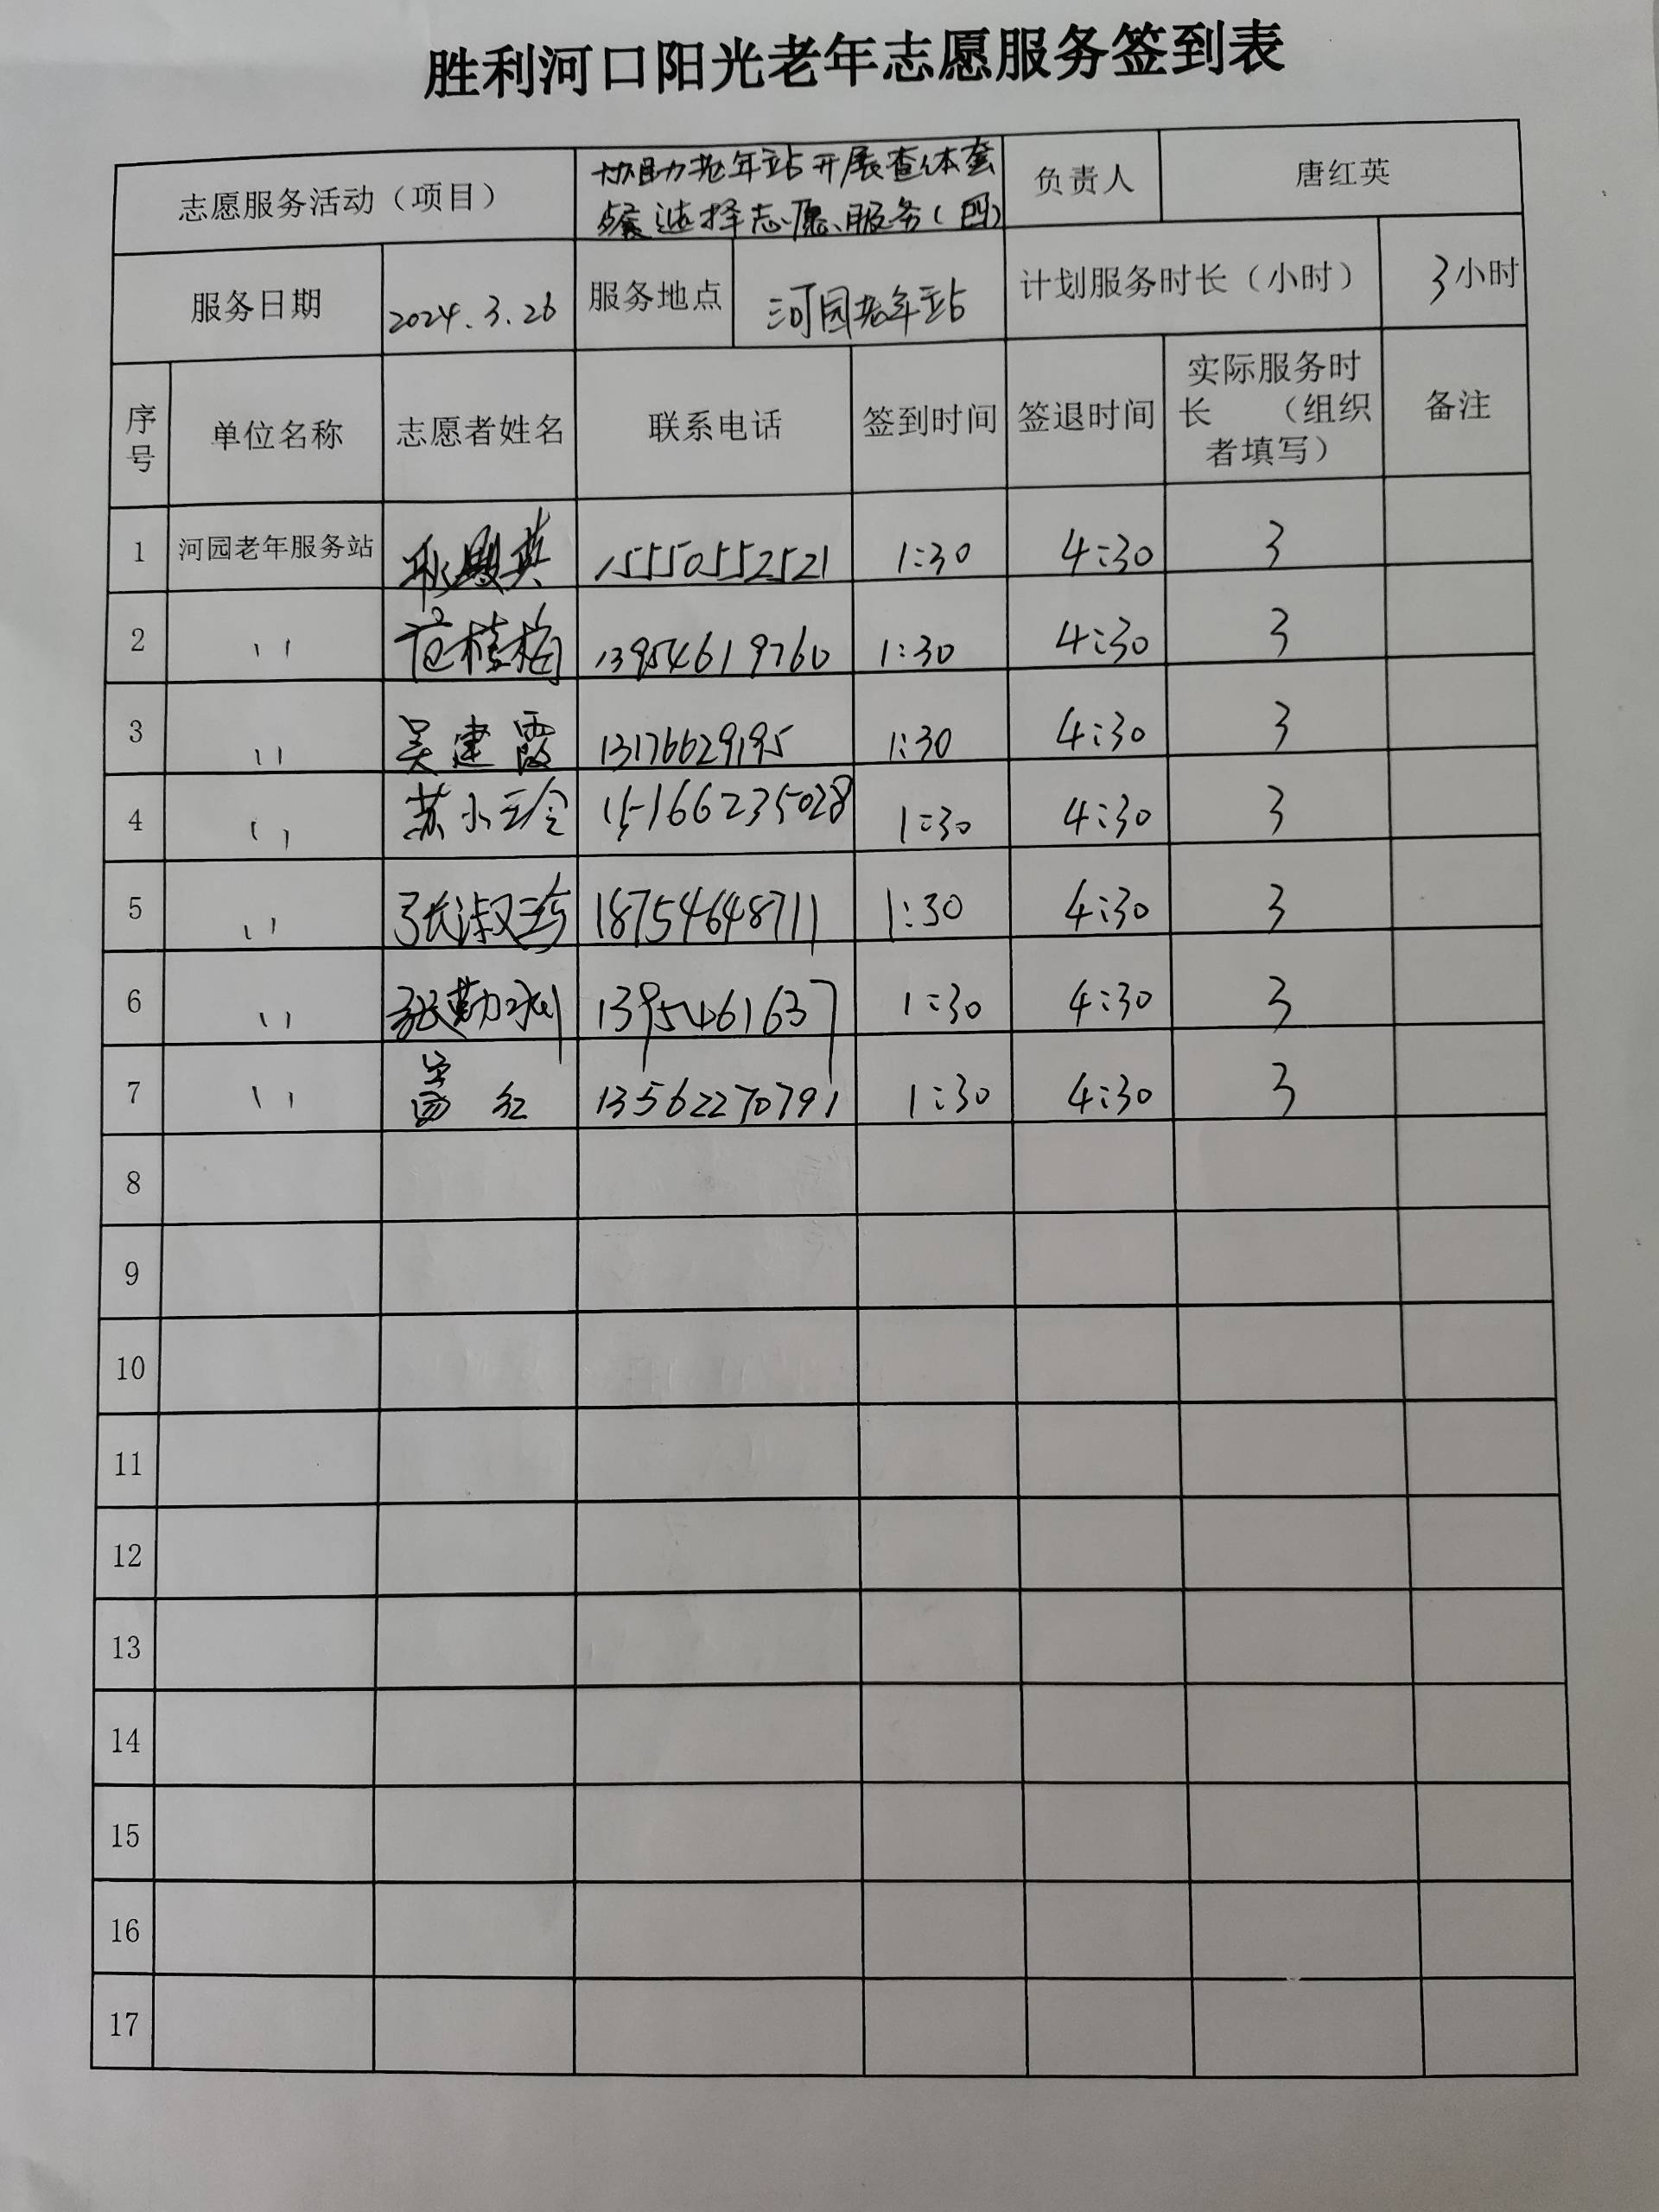 胜利河口阳光老年志愿服务签到表
志愿服务活动（项目） 协助老年站开展查体套 负责人 唐红英
餐选择志愿服务（四）
服务日期 2024.3.26 服务地点 河园老年站 计划服务时长（小时） 3小时
序号 单位名称 志愿者姓名 联系电话 签到时间 签退时间 实际服务时长 （组织者填写） 备注
1 河园老年服务站 15550552521 1:30 4:30 3
2 〃 范桂梅 13954619760 1:30 4:30 3
3 〃 吴建霞 13176629195 1:30 4:30 3
4 〃 苏小玲 15166235028 1:30 4:30 3
5 〃 张淑珍 18754648711 1:30 4:30 3
6 〃 张勤 1395461637 1:30 4:30 3
7 〃 红 13562270791 1:30 4:30 3
8
9
10
11
12
13
14
15
16
17